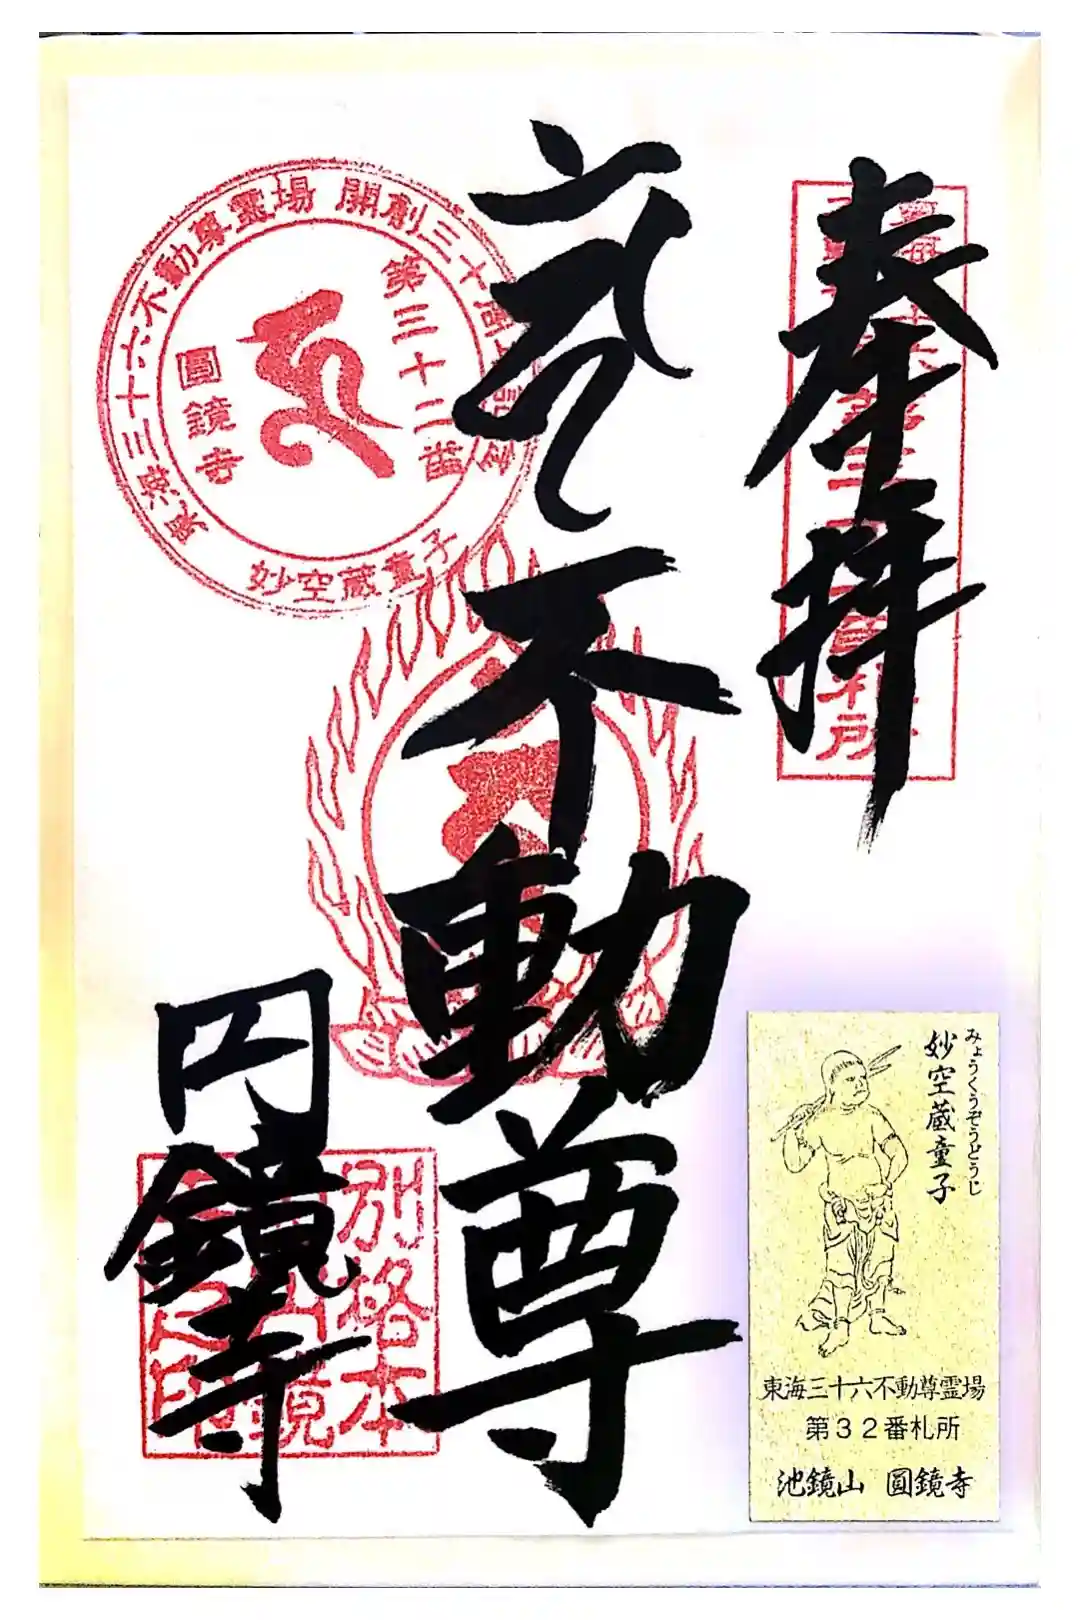 奉拝
不動尊
円鏡寺
東海三十六不動尊霊場 開創三十周
第三十二番
圓鏡寺
妙空蔵童子
別格本
妙空蔵童子
みょうくうぞうどうじ
東海三十六不動尊霊場
第32番札所
池鏡山 圓鏡寺